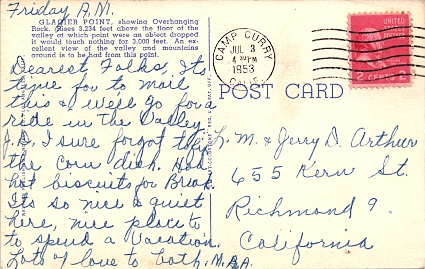 Friday A.M.
GLACIER POINT, showing Overhanging
Rock. Rises 3,234 feet above the floor of the
valley at which point were an object dropped
it would touch nothing for 3,000 feet. An ex-
cellent view of the valley and mountains
around is to be had from this point.
Dearest Folks, Its
time for to mail
this & we'll go for a
ride in the Valley
I sure forgot
the Corn dish. Had
hot biscuits for Break.
Its so nice & quiet
here, nice place to
to spend a Vacation.
Lots of love to both. M. & A.
CAMP CURRY
JUL 3
4 30 PM
1953
CALIF.
UNITED
2 CENTS 2
POST CARD
L. M. & Jerry D. Arthur
655 Kern St.
Richmond 9
California